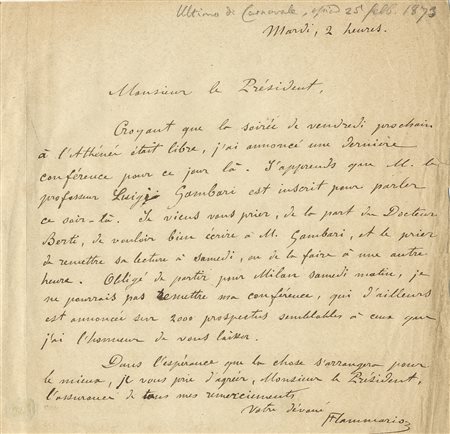 Ultimo di Carnevale, 25 febb. 1873
Mardi, 2 heures.
Monsieur le Président,
Croyant que la soirée de vendredi prochain
à l'Athénée était libre, j'ai annoncé une dernière
conférence pour ce jour là. J'apprends que M. le
professeur Luigi Gambari est inscrit pour parler
ce soir-là. Je viens vous prier, de la part du Docteur
Berti, de vouloir bien écrire à M. Gambari, et le prier
de remettre sa lecture à samedi, ou de la faire à une autre
heure. Obligé de partir pour Milan samedi matin, je
ne pourrais pas remettre ma conférence, qui d'ailleurs
est annoncée sur 2000 prospectus semblables à ceux que
j'ai l'honneur de vous laisser.
Dans l'espérance que la chose s'arrangera pour
le mieux, je vous prie d'agréer, Monsieur le Président,
l'assurance de tous mes remerciements
Votre dévoué
Flammarion